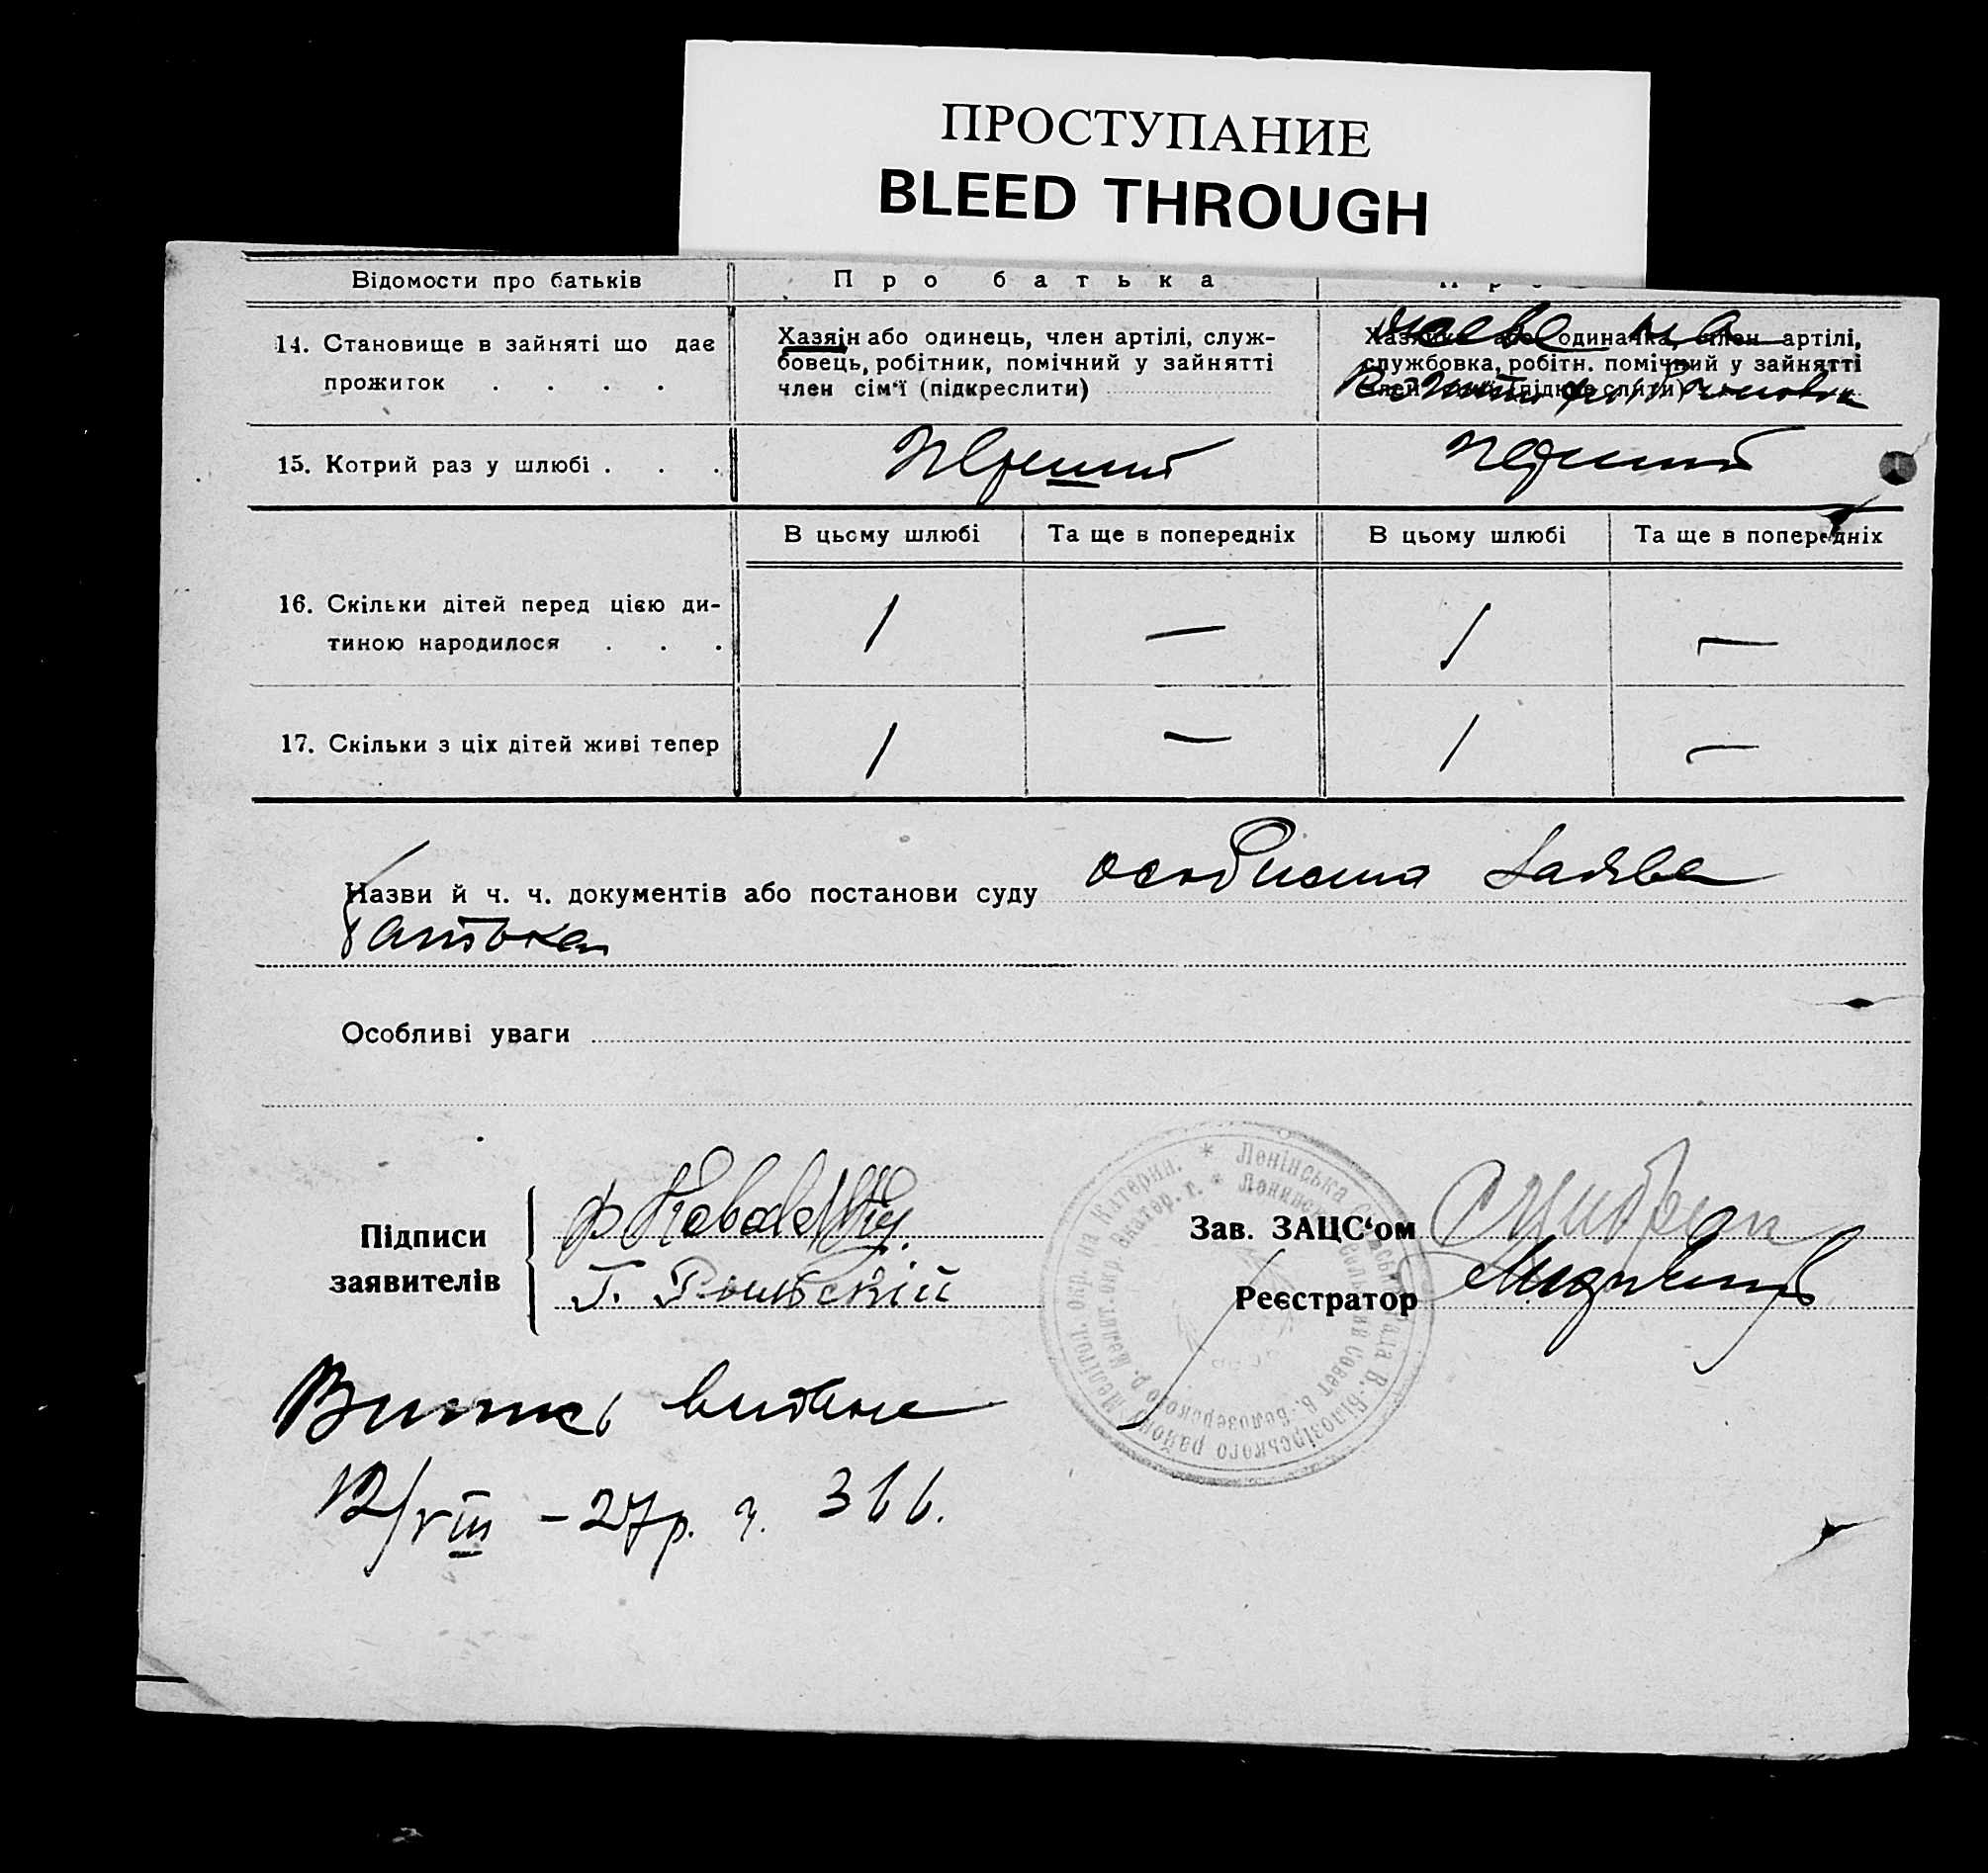 ПРОСТУПАНИЕ
BLEED THROUGH
Відомости про батьків
Про батька
14. Становище в зайняті що дає
прожиток . . . .
Хазяїн або одинець, член артілі, служ-
бовець, робітник, помічний у зайнятті
член сім'ї (підкреслити)
одиначка, член артілі,
службовка, робітн. помічний у зайнятті
15. Котрий раз у шлюбі . . .
Перший
Перший
В цьому шлюбі
Та ще в попередніх
В цьому шлюбі
Та ще в попередніх
16. Скільки дітей перед цією ди-
тиною народилося . . .
1 — 1 —
17. Скільки з ціх дітей живі тепер
1 — 1 —
Назви й ч. ч. документів або постанови суду особиста заява
батька
Особливі уваги
Підписи
заявителів
Зав. ЗАЦС‘ом
Реєстратор
* Ленінська Сільська Рада В.-Білозірського району Мелітоп. окр. на Катерин.
Випис видане
12/VIII – 27 р. ч. 366.